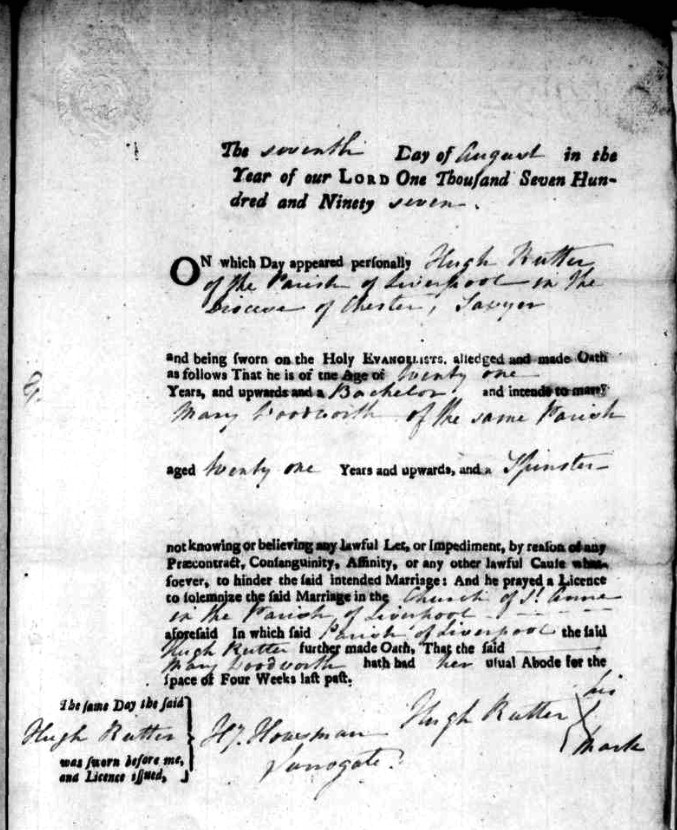 The seventh Day of August in the
Year of our LORD One Thouſand Seven Hun-
dred and Ninety seven.
ON which Day appeared perſonally Hugh Rutter
of the Parish of Liverpool in the
Diocese of Chester, Sawyer
and being ſworn on the Holy EVANGELISTS, alledged and made Oath
as follows That he is of the Age of twenty one
Years, and upwards and a Bachelor, and intends to marry
Mary Woodworth of the same Parish
aged twenty one Years and upwards, and a Spinster
not knowing or believing any lawful Let, or Impediment, by reaſon of any
Præcontract, Conſanguinity, Affinity, or any other lawful Cauſe what-
ſoever, to hinder the ſaid intended Marriage: And he prayed a Licence
to ſolemnize the ſaid Marriage in the Church of St. Anne
in the Parish of Liverpool
aforeſaid In which ſaid Parish of Liverpool the ſaid
Hugh Rutter further made Oath, That the ſaid
Mary Woodworth hath had her uſual Abode for the
ſpace of Four Weeks laſt paſt.
The ſame Day the ſaid
Hugh Rutter
was ſworn before me,
and Licence iſſued,
Housman
Surrogate.
Hugh Rutter his
mark